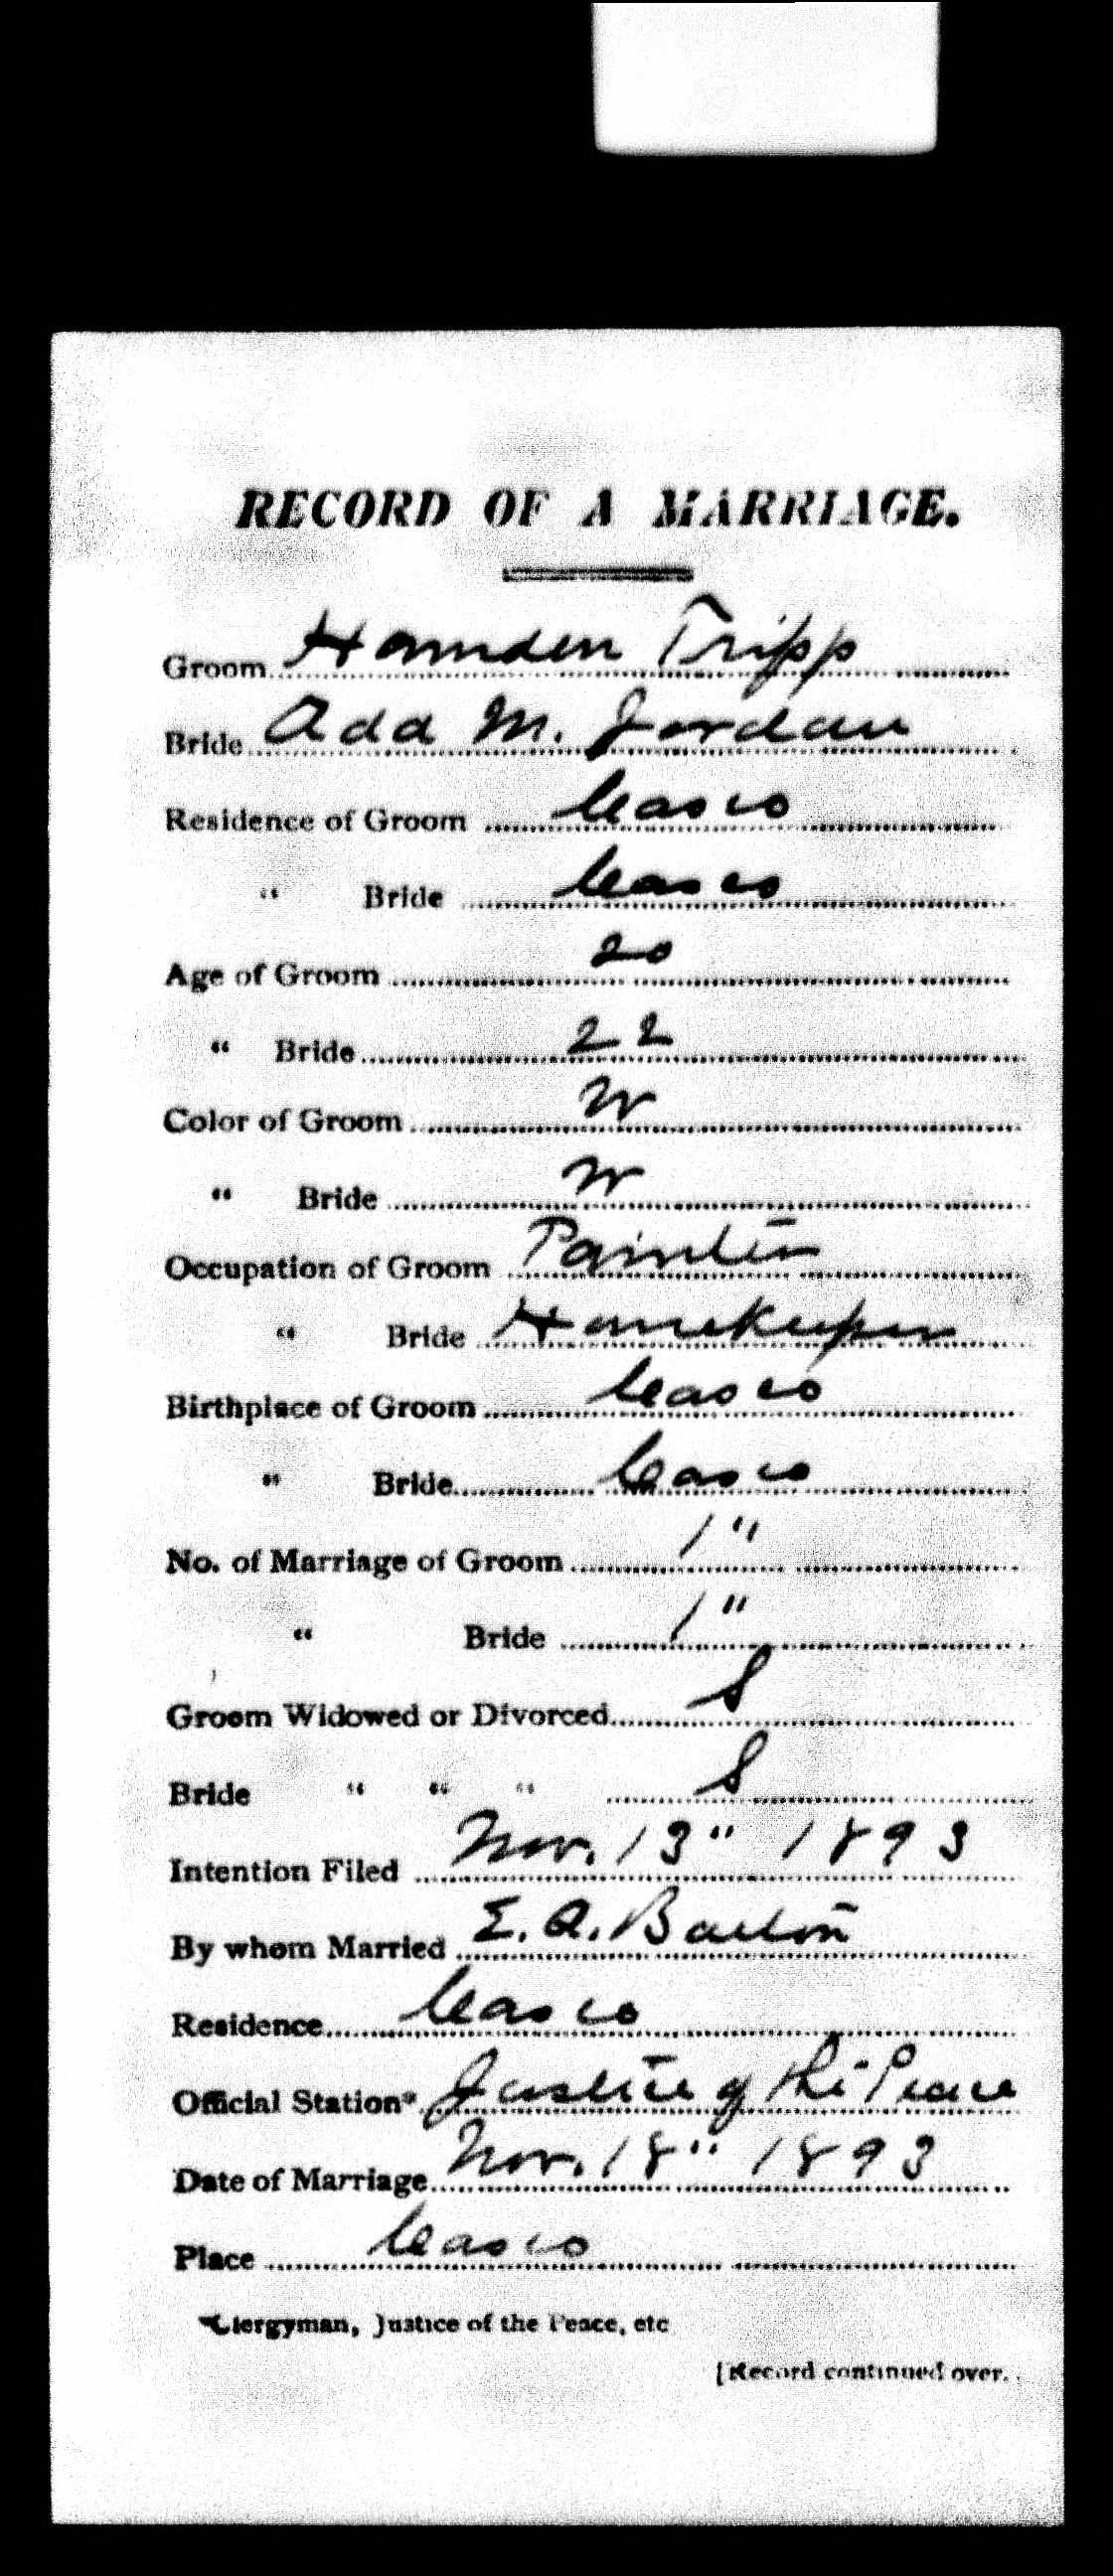 RECORD OF A MARRIAGE.
Groom Hamden Tripp
Bride Add M. Jordan
Residence of Groom Casco
" Bride Casco
Age of Groom 20
" Bride 22
Color of Groom W
" Bride W
Occupation of Groom Painter
" Bride Housekeeper
Birthplace of Groom Casco
" Bride Casco
No. of Marriage of Groom 1"
" Bride 1"
Groom Widowed or Divorced S
Bride " " " S
Intention Filed Nov. 13" 1893
By whom Married E. A. Barton
Residence Casco
Official Station* Justice of the Peace
Date of Marriage Nov. 18" 1893
Place Casco
*Clergyman, Justice of the Peace, etc
[Record continued over.